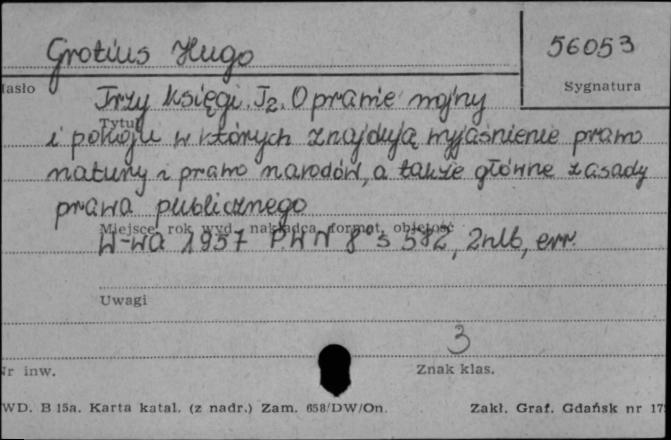 Grotius Hugo
56053
Sygnatura
Hasło
Trzy księgi. T2. O prawie wojny
Tytuł
i pokoju w których znajdują wyjaśnienie prawo
natury i prawo narodów, a także główne zasady
prawa publicznego
Miejsce, rok wyd., nakładca, format, objętość
W-wa 1957 PWN 8° s 582, 2nlb, err.
Uwagi
3
Nr inw.
Znak klas.
WD. B 15a. Karta katal. (z nadr.) Zam. 658/DW/On.
Zakł. Graf. Gdańsk nr 17